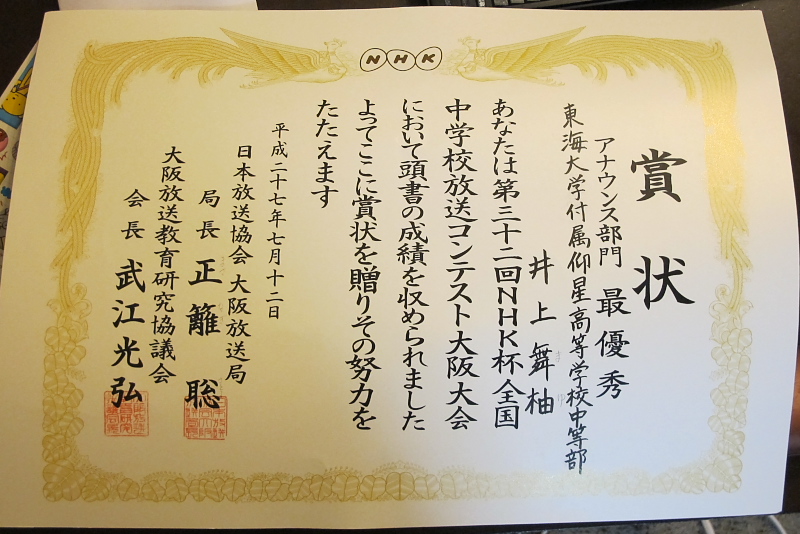 NHK
賞状
アナウンス部門 最優秀
東海大学付属仰星高等学校中等部
井上舞柚
あなたは第三十二回NHK杯全国
中学校放送コンテスト大阪大会
において頭書の成績を収められました
よってここに賞状を贈りその努力を
たたえます
平成二十七年七月十二日
日本放送協会 大阪放送局
局長 正籬 聡
大阪放送教育研究協議会
会長 武江光弘